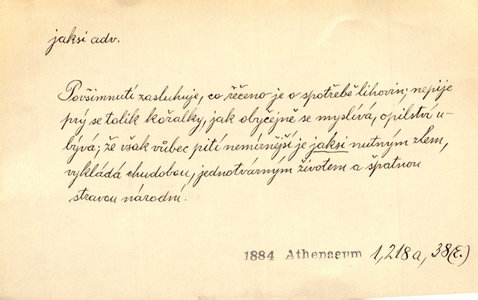 jaksi adv.
Povšimnutí zasluhuje, co řečeno je o spotřebě lihovin; nepije
prý se tolik kořalky, jak obyčejně se myslívá, opilství u-
bývá; že však vůbec pití nemírnější je jaksi nutným zlem,
vykládá chudobou, jednotvárným životem a špatnou
stravou národní.
1884 Athenaeum 1,218a,38(č.)